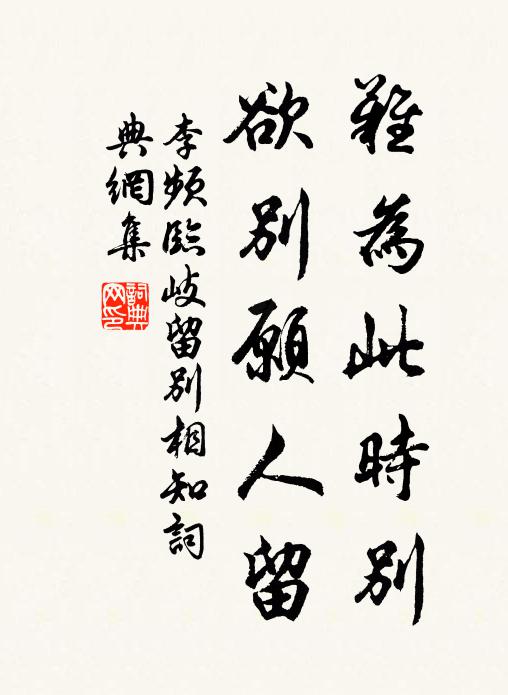 難為此時別
欲別願人留
李頻臨岐留別相知詞
典網集
詞典網印